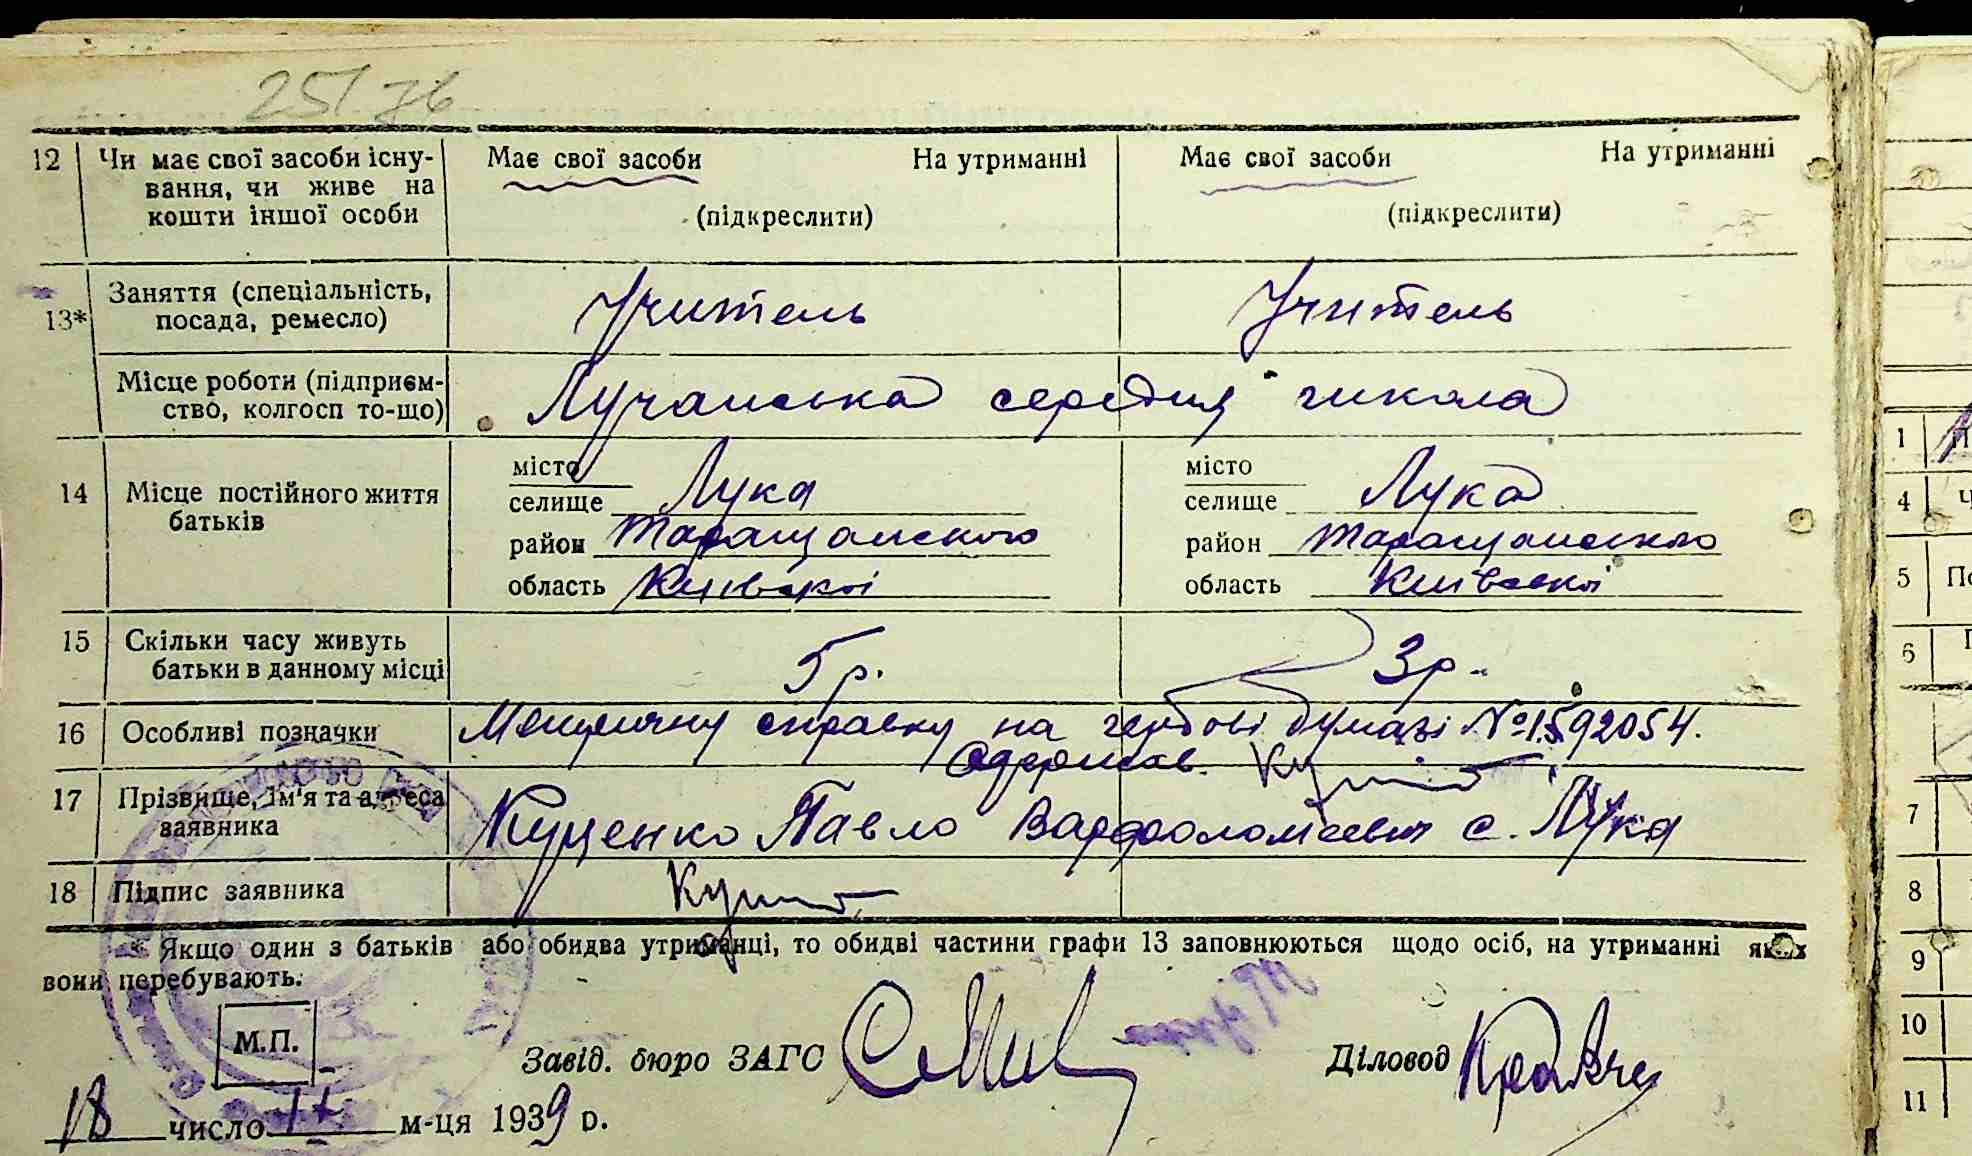 251 зв
12 Чи має свої засоби існу- Має свої засоби На утриманні Має свої засоби На утриманні
вання, чи живе на
кошти іншої особи (підкреслити) (підкреслити)
13* Заняття (спеціальність, Учитель Учитель
посада, ремесло)
Місце роботи (підприєм- Лучанська середня школа
ство, колгосп то-що)
14 Місце постійного життя місто місто
батьків селище Лука селище Лука
район Таращанського район Таращанського
область Київської область Київської
15 Скільки часу живуть 5 р. 3 р.
батьки в данному місці
16 Особливі позначки справку на гербові бумазі №1592054.
одержав.
17 Прізвище, Ім'я та адреса Куценко Павло Варфоломеевич с. Лука
заявника
18 Підпис заявника
* Якщо один з батьків або обидва утриманці, то обидві частини графи 13 заповнюються щодо осіб, на утриманні яких
вони перебувають.
М.П.
Завід. бюро ЗАГС Діловод
18 число м-ця 1939 р.
1 П
4 Ч
5 По
6
7
8
9
10
11